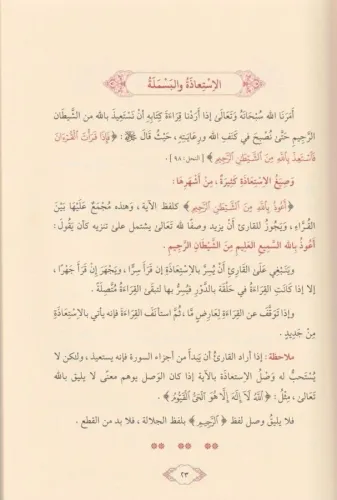 الِاسْتِعاذَةُ والبَسْمَلَةُ
أَمَرَنَا الله سُبْحَانَهُ وَتَعَالَى إذَا أَرَدْنَا قِرَاءَةَ كِتَابِهِ أنْ نَسْتَعِيذَ بالله من الشَّيطَان
الرَّجِيمِ حَتَّى نُصْبِحَ في كَنَفِ الله ورِعَايَتِهِ، حَيْثُ قَالَ ﷻ: ﴿فَإِذَا قَرَأْتَ ٱلْقُرْءَانَ
فَٱسْتَعِذْ بِٱللَّهِ مِنَ ٱلشَّيْطَٰنِ ٱلرَّجِيمِ﴾ [النحل: ٩٨].
وَصِيَغُ الِاسْتِعَاذَةِ كَثِيرَةٌ، مِنْ أَشْهَرِهَا:
﴿أَعُوذُ بِٱللَّهِ مِنَ ٱلشَّيْطَٰنِ ٱلرَّجِيمِ﴾ كَلفظ الآية، وَهٰذه مُجْمَعٌ عَلَيْهَا بَيْنَ
القُرَّاءِ، وَيَجُوزُ للقارئ أنْ يزيد وصفًا لله تعَالىٰ يشتمل على تنزيه كأن يَقُولَ:
أَعُوذُ بالله السَّمِيعِ العَلِيمِ مِنَ الشَّيطَانِ الرَّجِيمِ.
ويَنْبَغِي عَلَىٰ القَارِئِ أَنْ يُسِرَّ بالاِسْتِعَاذَةِ إن قَرَأَ سِرًّا، ويَجْهَرَ إنْ قَرَأَ جَهْرًا،
إلا إذا كَانَتِ القِرَاءَةُ في حَلْقَةٍ بالدَّوْرِ فَيُسِرُّ بها لتبقَىٰ القِرَاءَةُ مُتَّصِلَةً.
وإذا تَوَقَّفَ عن القِرَاءَةِ لِعَارِضٍ مَا، ثُمَّ استَأنَفَ القِرَاءَةَ فإنه يأتي بالاِسْتِعَاذَةِ
مِنْ جَدِيدٍ.
ملاحظة: إذا أراد القارئ أن يَبدأ من أجزاء السورة فإنه يستعيذ، ولكن لا
يُسْتَحبُّ له وَصْلُ الاِستعاذة بالآية إذا كان الوَصل يوهم معنًى لا يليق بالله
تعَالىٰ، مِثْلُ: ﴿ٱللَّهُ لَآ إِلَٰهَ إِلَّا هُوَ ٱلْحَىُّ ٱلْقَيُّومُ﴾.
فلا يليق وصل لفظ ﴿ٱلرَّجِيمِ﴾ بلفظ الجلالة، فلا بد من القطع.
٢٣